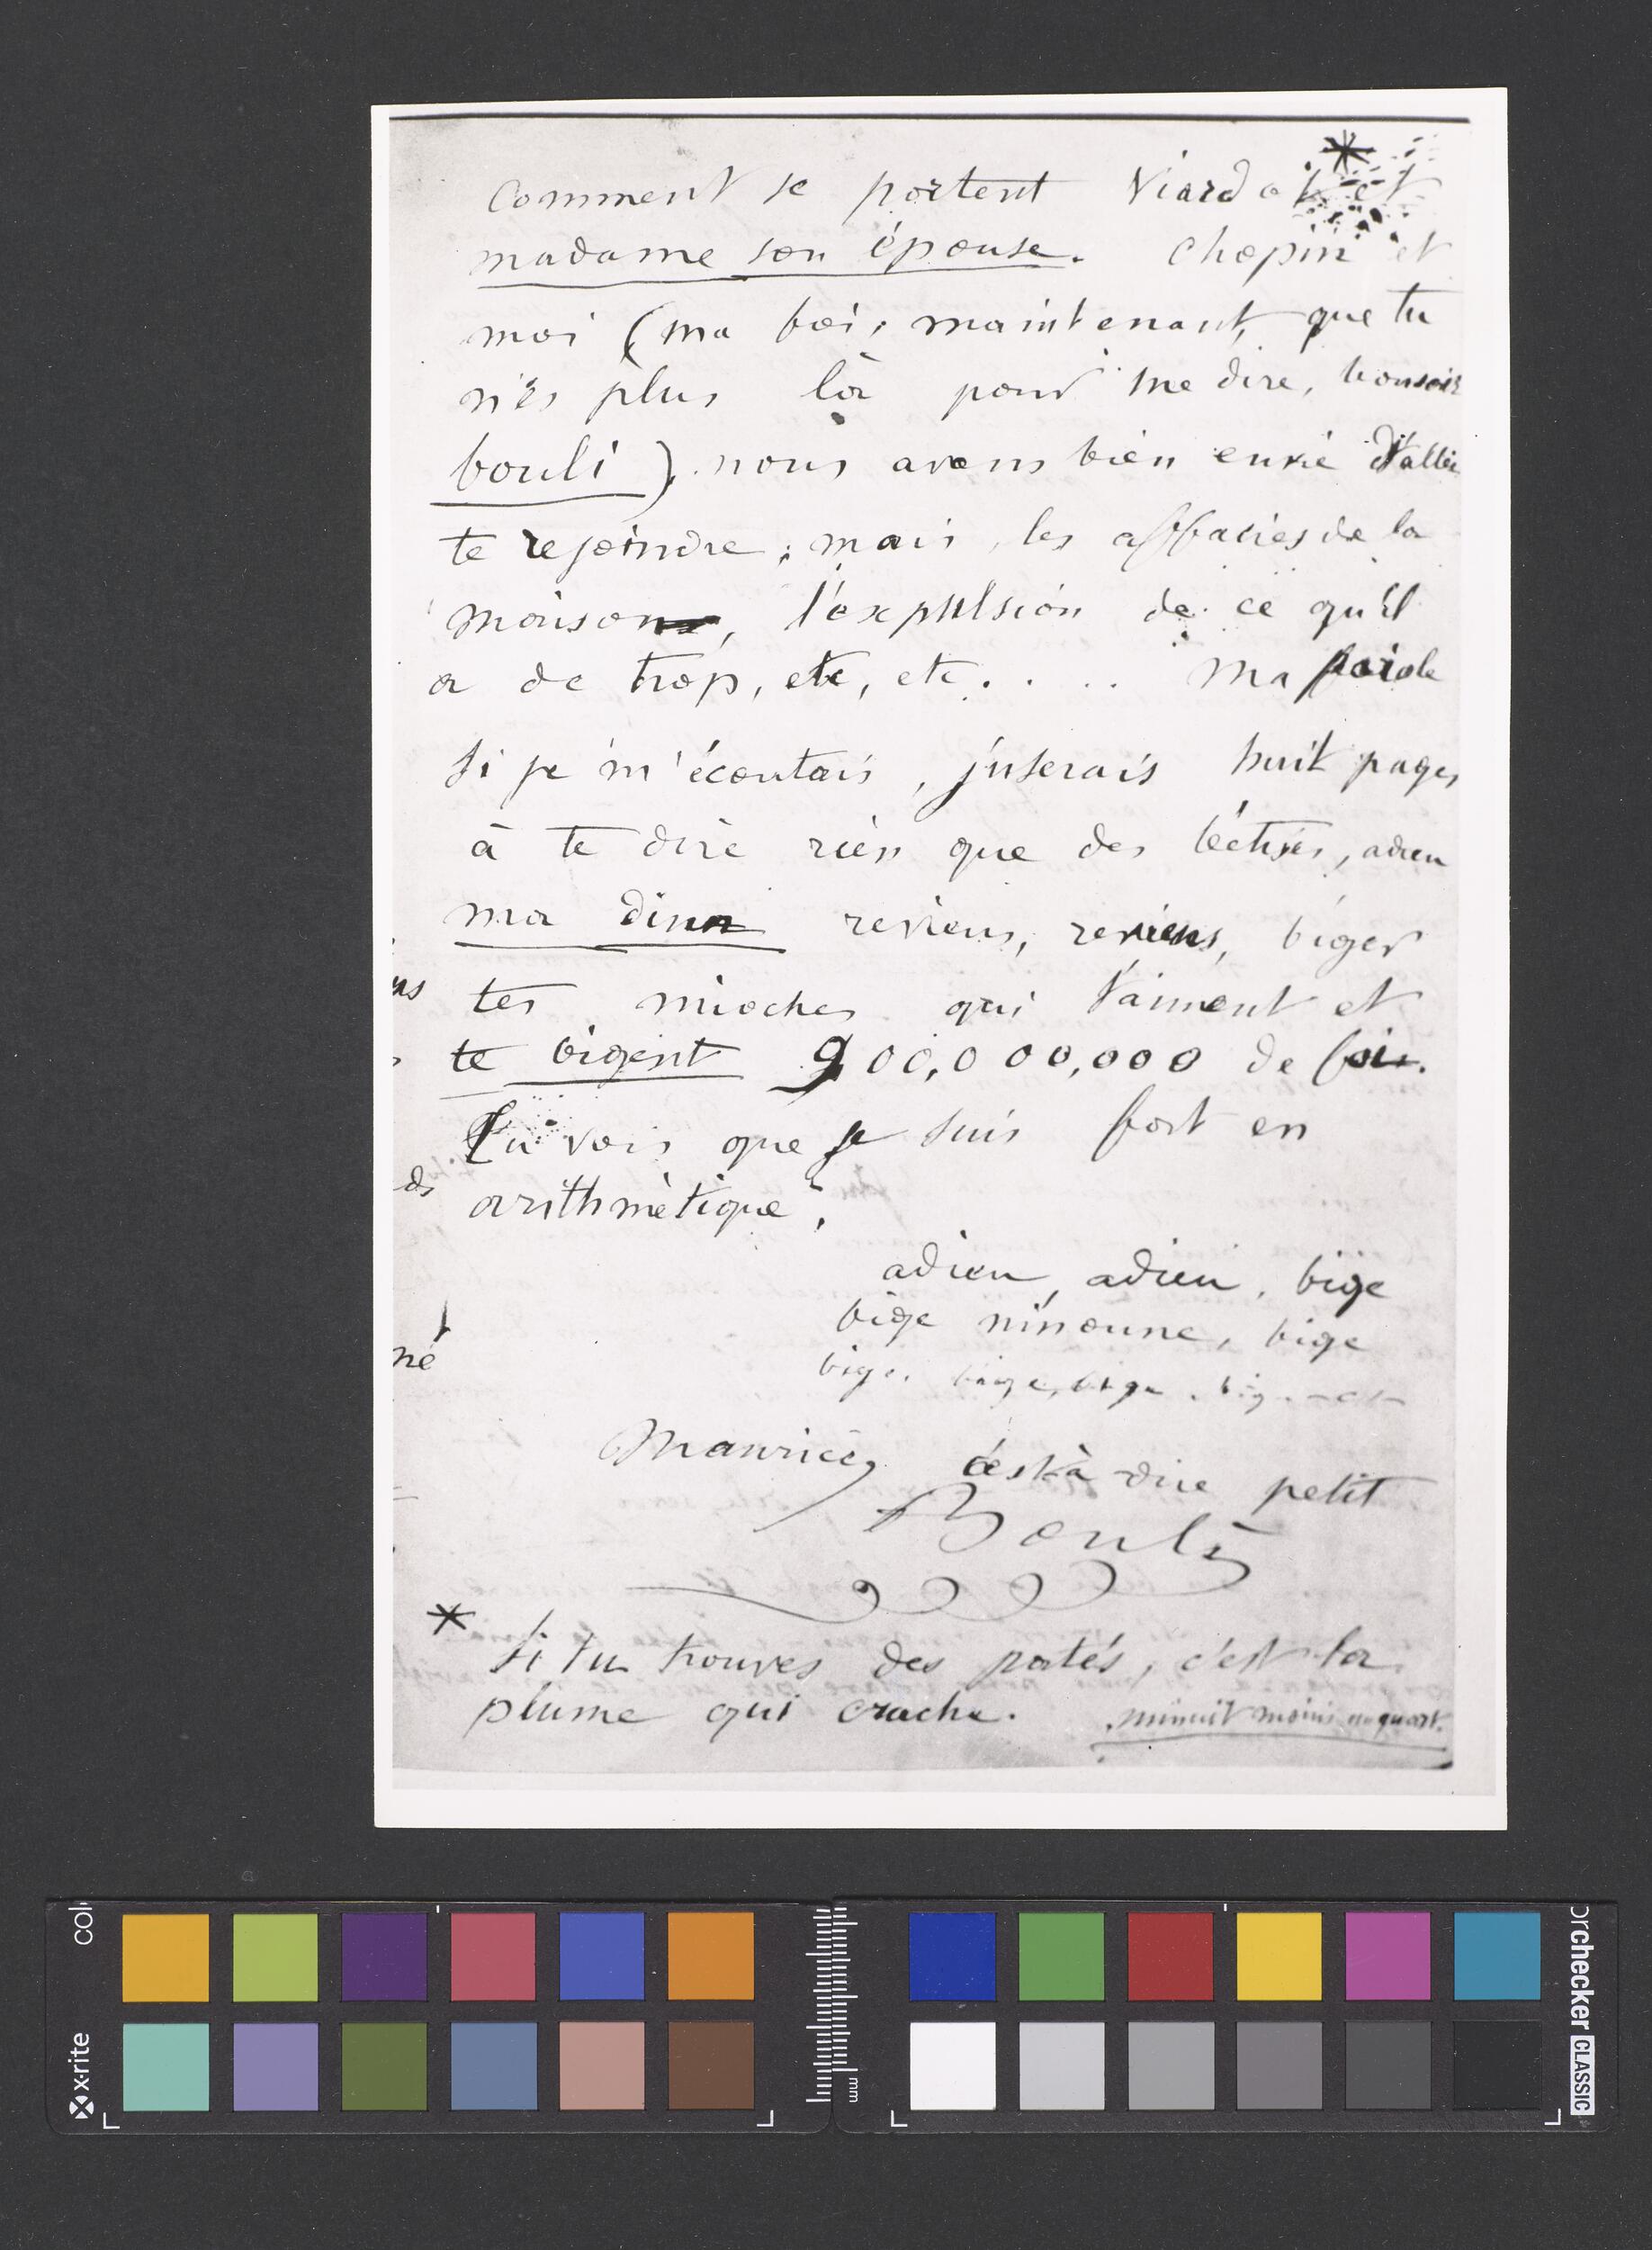 *
Comment se portent Viardot et
madame son épouse. Chopin et
moi (ma foi, maintenant, que tu
n'es plus là pour me dire, bonsoir
bouli). nous avons bien envie d'aller
te rejoindre, mais, les affaires de la
maison, l'expulsion de ce qu'il
a de trop, etc, etc. . . . Ma parole
si je m'écoutais, j'userais huit pages
à te dire rien que des bêtises, adieu
ma dinn reviens, reviens, biger
tes mioches qui t'aiment et
te bigent 900,000,000 de fois.
Tu vois que je suis fort en
arithmétique.
adieu, adieu, bige
bige ninoune, bige
bige, bige, bige
Maurice, c'est à dire petit
Bouli
* Si tu trouves des patés, c'est la
plume qui crache. minuit moins un quart.
ns
ds
né
col
x-rite
mm
orchecker CLASSIC